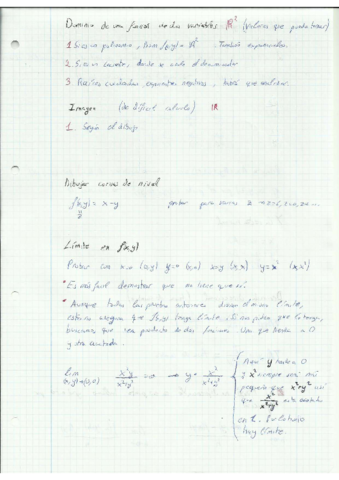 Dominio de una función en dos variables: ℝ² (Valores que puede tomar)
1. Si es un polinomio, Dom f(x,y) = ℝ², También exponenciales.
2. Si es un cociente, donde se anula el denominador
3. Raíces cuadradas, exponentes negativos, habrá que analizar.
Imagen (de difícil calcular) ℝ
1. Según el dibujo
Dibujar curvas de nivel
f(x,y) = x-y probar para varios z → z=1, z=0, z=
z
Límite en f(x,y)
Probar con x=0 (0,y) y=0 (x,0) x=y (x,x) y=x² (x,x²)
* Es más fácil demostrar que no hay que
* Aunque todas las pruebas anteriores dieran el mismo límite,
no asegura que f(x,y) tenga límite,
buscamos que sea producto de dos funciones. Una que tienda a 0
y otra acotada.
Lim x²y/x²+y² → y · x²/x²+y²
(x,y)→(0,0)
Aquí y tiende a 0
y x² siempre será más
pequeño que x²+y² así
que x²/x²+y² está acotada
en 1. Por lo tanto
hay límite.